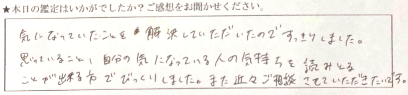 ★本日の鑑定はいかがでしたか？ご感想をお聞かせください。
気になっていたことを解決していただいたのですっきりしました。
思っていること、自分の気になっている人の気持ちを読みとる
ことが出来る方でびっくりしました。また近々ご相談させていただきたいです。